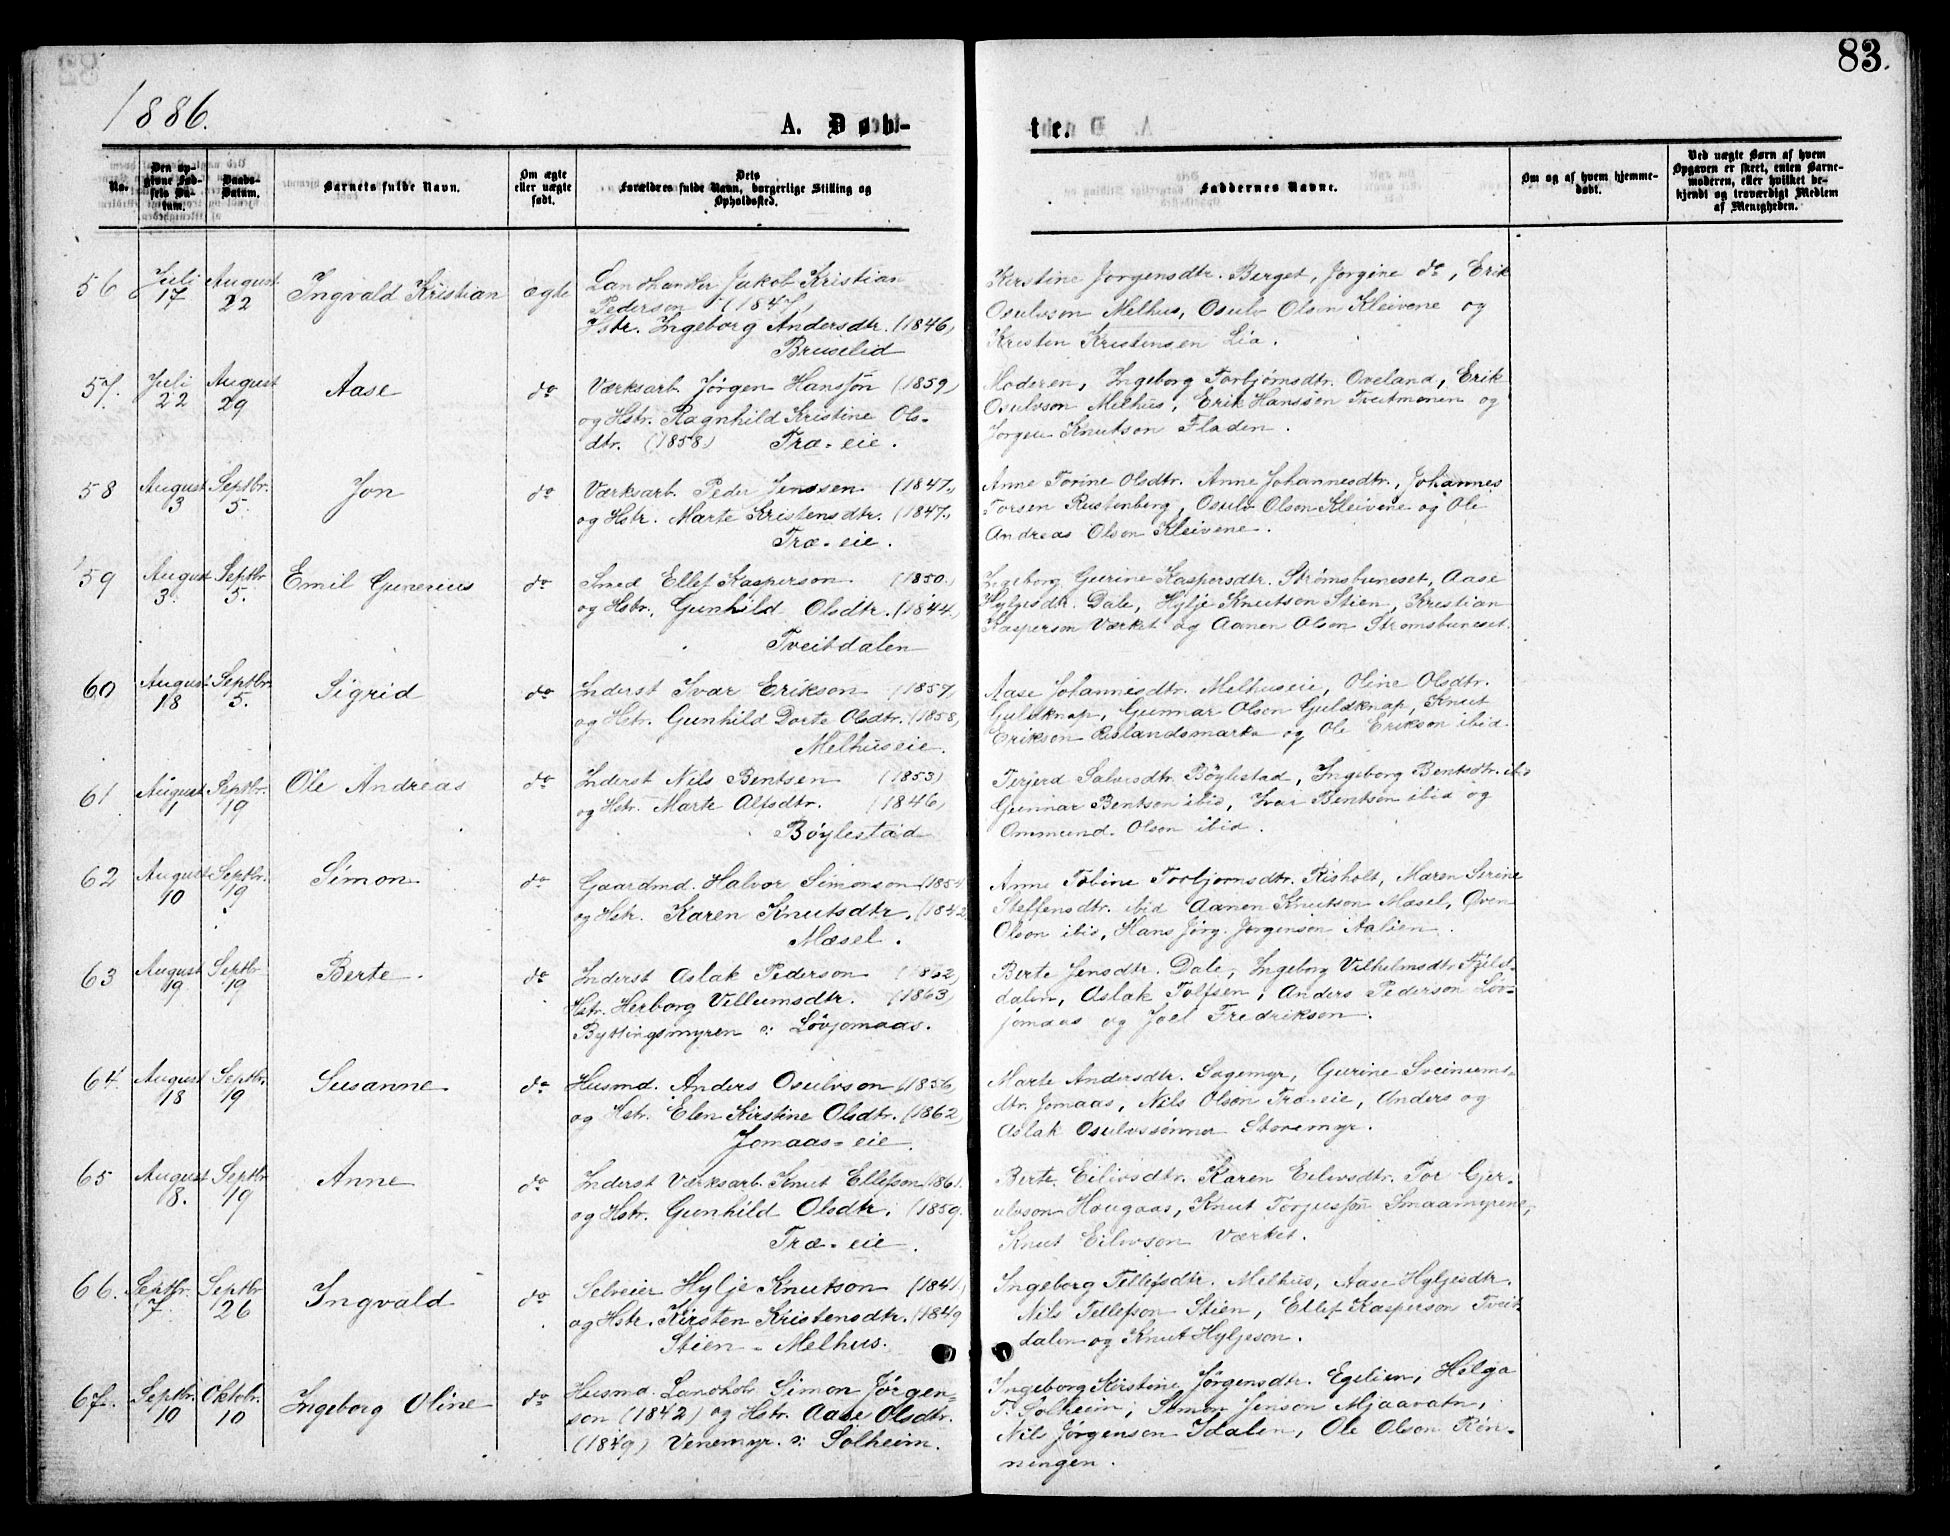 83.
1886.
A. Døb-
te.
No.
Den opgivne Fødsels Datum.
Daabs-Datum.
Barnets fulde Navn.
Om ægte eller uægte født.
Dets Forældres fulde Navn, borgerlige Stilling og Opholdssted.
Faddernes Navne.
Om og af hvem hjemmedøbt.
Ved uægte Børn af hvem Opgaven er skeet, enten Barnemoderen, eller hvilket bekjendt og troværdigt Medlem af Menigheden.
56 Juli 17 August 22 Ingvald Kristian ægte
Landhandler Jakob Kristian
Pederson (1847)
Hstr. Ingeborg Andersdtr. (1846)
Bruselid
Kirstine Jørgensdtr. Berget, Jørgine do, Erik
Osulvson Melhus, Osulv Olson Kleivene og
Kristen Kristensen Lia.
57. Juli 22 August 29 Aase do
Værksarb. Jørgen Hansson (1859)
og Hstr. Ragnhild Kristine Ols-
dtr. (1858) Træ-eie.
Moderen, Ingeborg Torbjørnsdtr. Oveland, Erik
Osulvson Melhus, Erik Hansson Tveitmonen og
Jørgen Knutson Fladen.
58 August 3 Septbr. 5. Jon do
Værksarb. Peder Jenssen (1847)
og Hstr. Marte Kristensdtr. (1847)
Træ-eie.
Anne Torine Olsdtr. Anne Johannesdtr., Johannes
Torsen Rustenberg, Osulv Olson Kleivene og Ole
Andreas Olson Kleivene.
59 August 3. Septbr 5. Emil Gunerius do
Smed Ellef Kasperson (1850)
og Hstr. Gunhild Olsdtr. (1844)
Tveitdalen
Ingeborg Gurine Kaspersdtr. Strømsbuneset, Aase
Hyljesdtr. Dale, Hylje Knutson Stien, Kristian
Kasperson Værket og Aanen Olson Strømsbuneset.
60 August 18 Septbr. 5. Sigrid do
Inderst Ivar Erikson (1857)
og Hstr. Gunhild Dorte Olsdtr. (1858)
Melhuseie.
Aase Johannesdtr. Melhuseie, Oline Olsdtr.
Guldknap, Gunnar Olson Guldknap, Knut
Erikson Rislandsmarka og Ole Erikson ibid.
61 August 1 Septbr. 19 Ole Andreas do
Inderst Nils Bentsen (1853)
og Hstr. Marte Alfsdtr. (1846)
Bøylestad
Terjerd Salvesdtr. Bøylestad, Ingeborg Bentsdtr. ibid
Gunnar Bentson ibid, Ivar Bentson ibid og
Ommund Olson ibid.
62 August 10 Septbr. 19 Simon do
Gaardmd. Halvor Simonson (1854
og Hstr. Karen Knutsdtr. (1842
Mæsel.
Anne Tobine Torbjørnsdtr. Risholt, Maren Serine
Steffensdtr. ibid Aanen Knutson Mæsel, Øven
Olson ibid, Hans Jørg. Jørgenson Aalien.
63 August 19 Septbr 19 Berte do
Inderst Aslak Pederson (1862)
Hstr. Herborg Villumsdtr. (1863)
Byttingsmyren o: Løvjomaas.
Berte Jensdtr. Dale, Ingeborg Vilhelmsdtr. Fjelst-
dalen, Aslak Tolfsen, Anders Pederson Løv-
jomaas og Joel Fredrikson.
64 August 18 Septbr. 19 Susanne do
Husmd. Anders Osulvson (1856)
og Hstr. Elen Kirstine Olsdtr. (1862)
Jomaas-eie.
Marte Andersdtr. Sagemyr, Gurine Sveinums-
dtr. Jomaas, Nils Olson Træ-eie, Anders og
Aslak Osulvssønner Storemyr.
65 August 18. Septbr 19 Anne do
Inderst Værksarb. Knut Ellefson (1861.
og Hstr. Gunhild Olsdtr. (1859.
Træ-eie.
Berte Eilivsdtr. Karen Eilivsdtr. Tor Gjer-
ulvson Hougaas, Knut Torjusson Smaamyrene,
Knut Eilivson Værket.
66. Septbr. 7. Septbr 26 Ingvald do
Selveier Hylje Knutson (1841)
og Hstr. Kirsten Kristensdtr. (1849
Stien - Melhus.
Ingeborg Tellefsdtr. Melhus, Aase Hyljesdtr.
Nils Tellefson Stien, Ellef Kasperson Tveit-
dalen og Knut Hyljeson.
67. Septbr. 10 Oktobr. 10 Ingeborg Oline do
Husmd. Landhdr. Simon Jørgen-
son (1842) og Hstr. Aase Olsdtr.
(1849) Venemyr. o: Solheim.
Ingeborg Kirstine Jørgensdtr. Egelien, Helga
T. Solheim, Simon Jenson Mjaavatn,
Nils Jørgenson Idalen, Ole Olson Røn-
ningen.